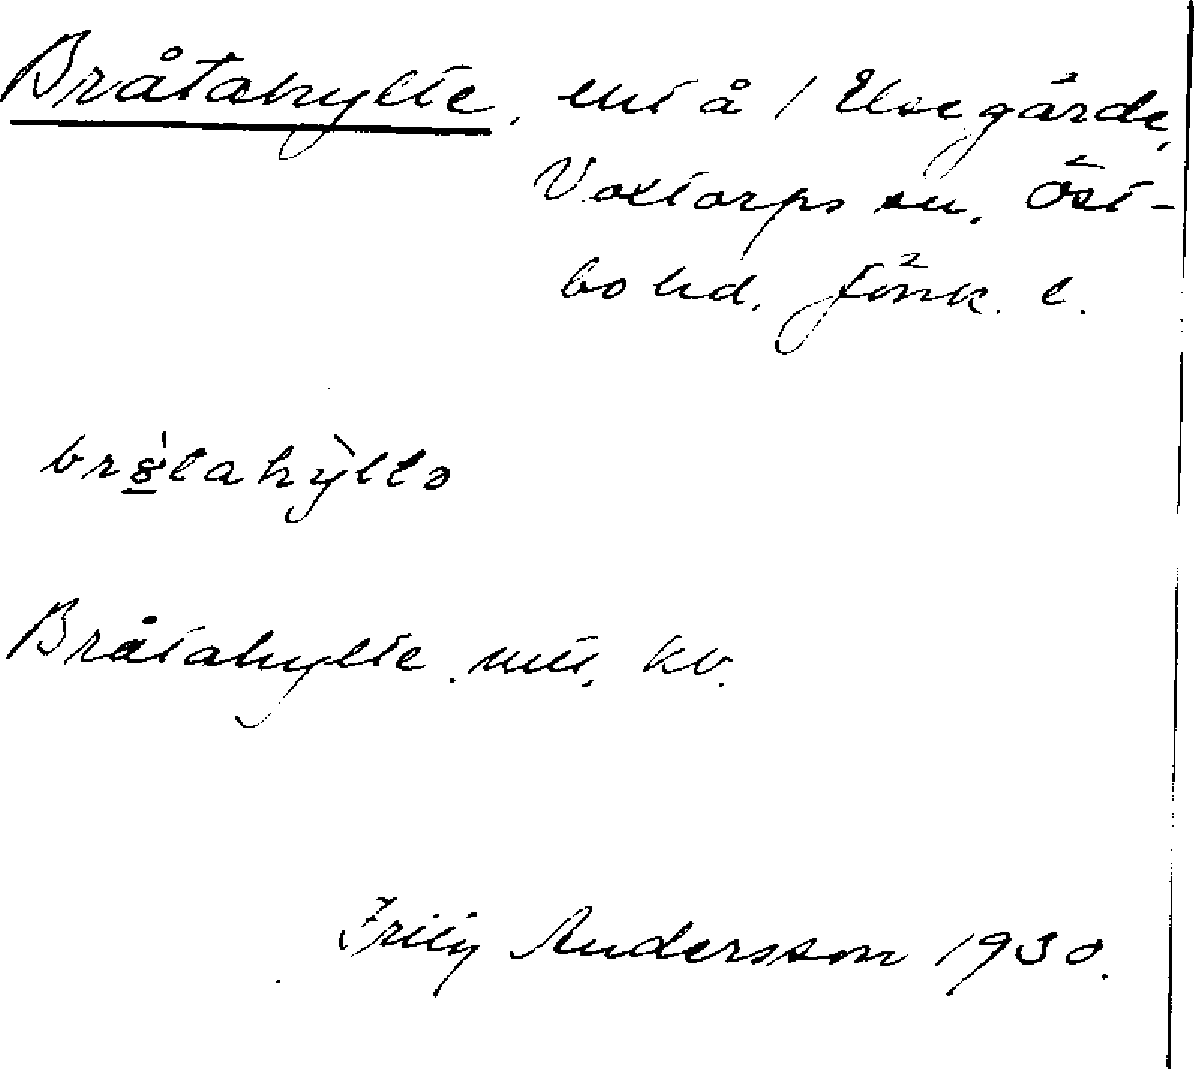 Bråtahylte, ent å 1 Elsegårde,
Voxtorps sn, Öst-
bo hd, Jönk. l.
Bråtahylte
Fritz Andersson 1930.